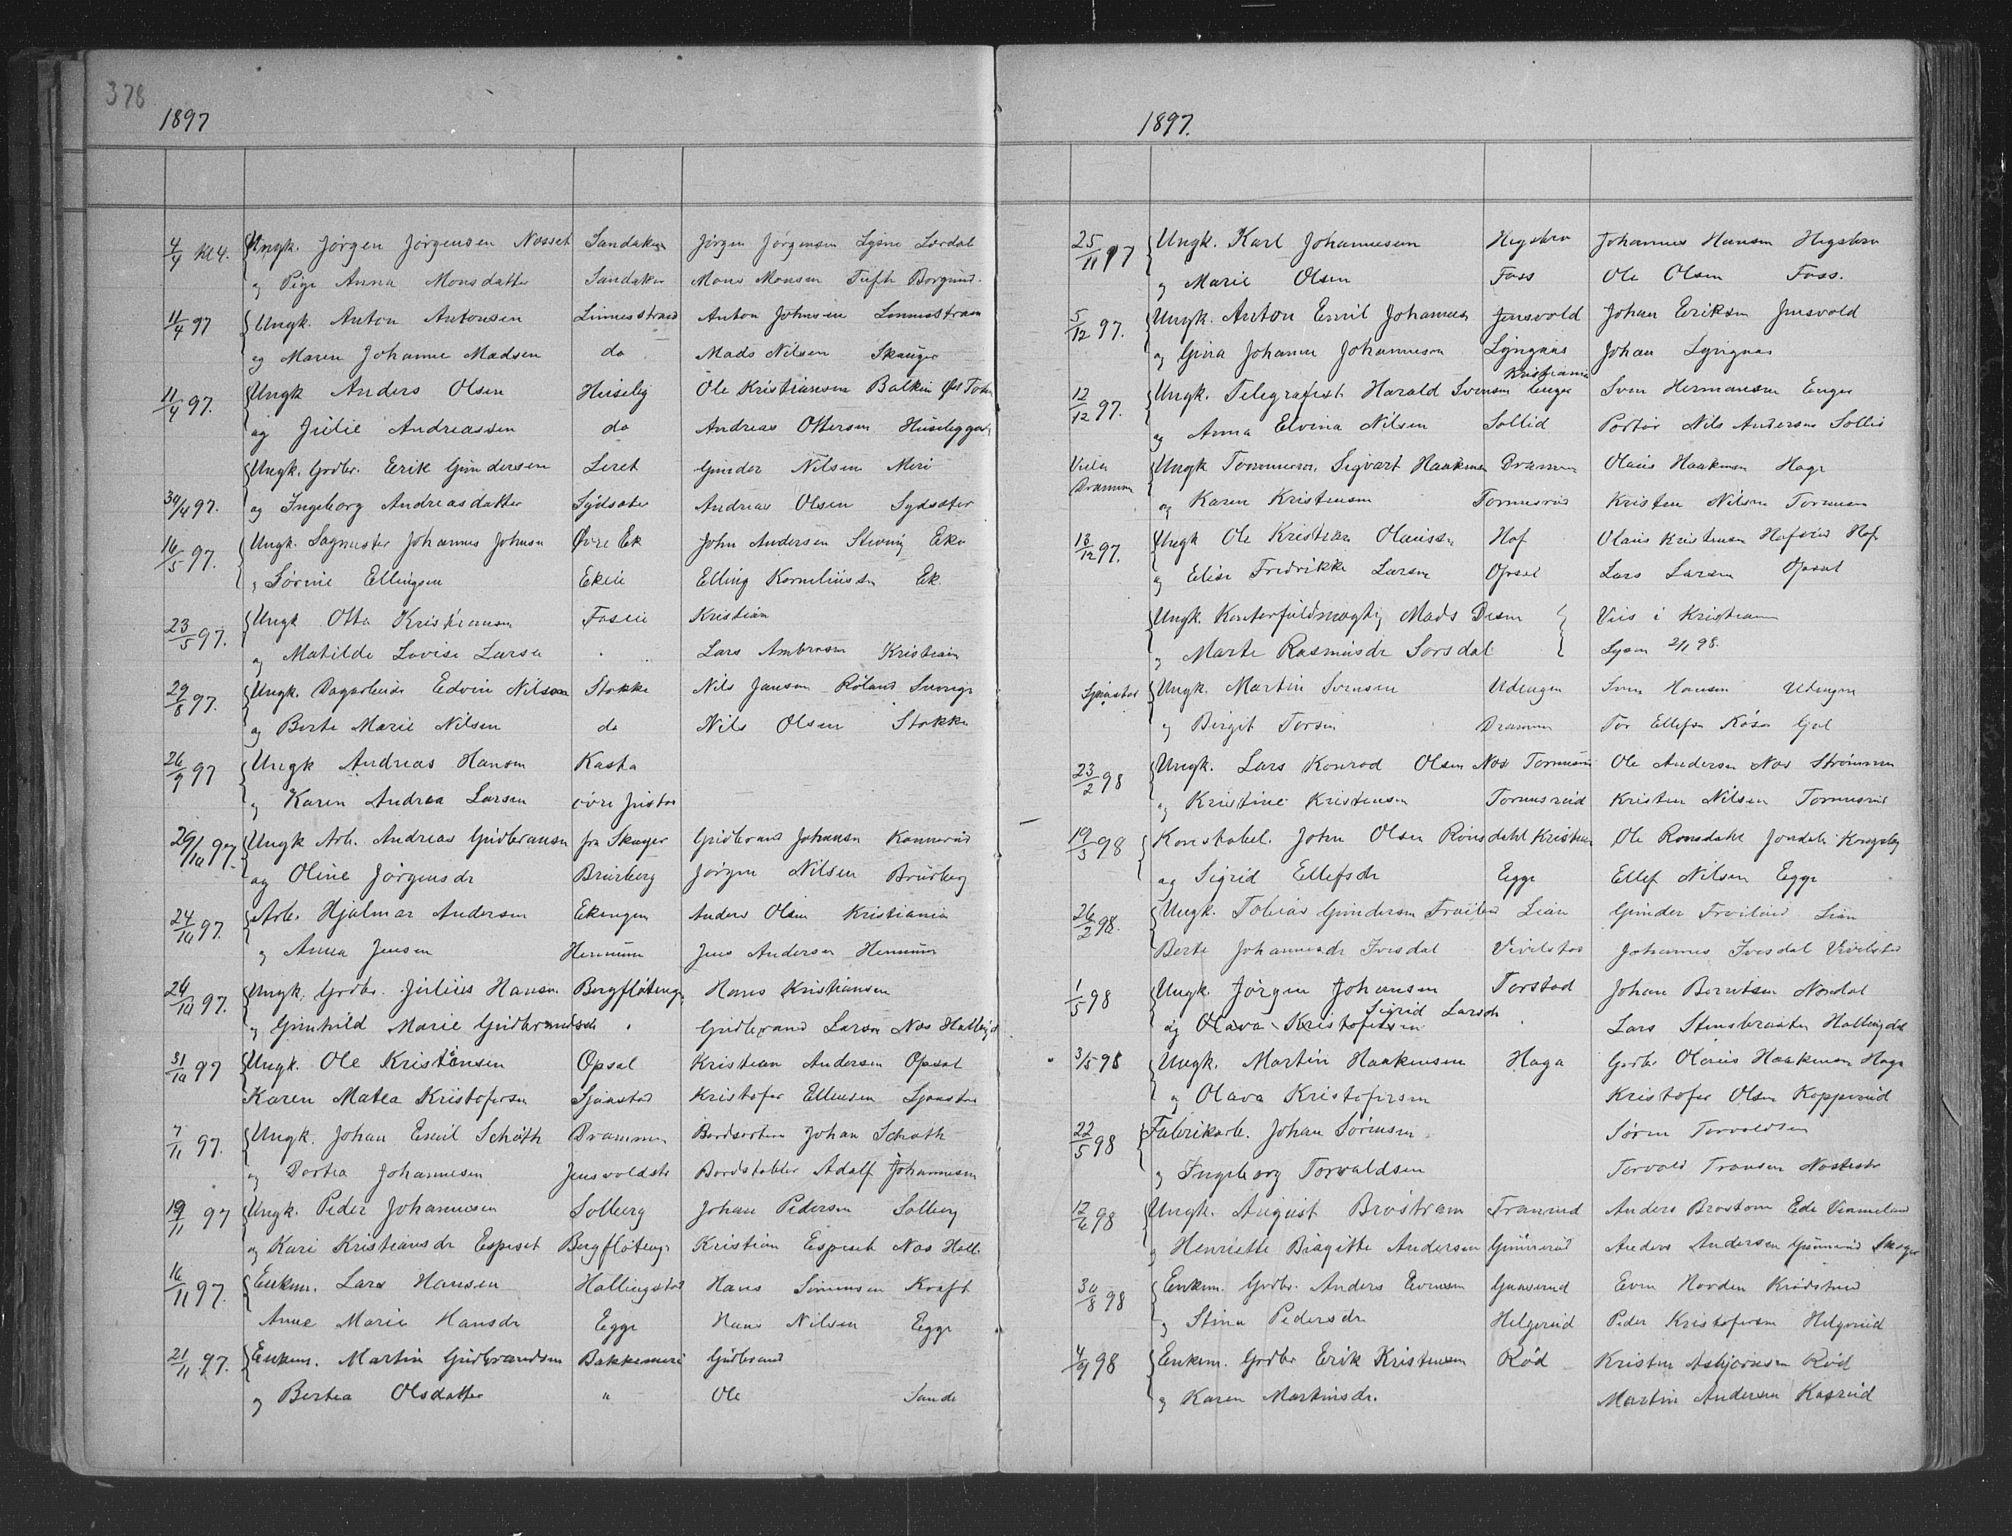 378
1897
4/4 Kl 4. Ungk. Jörgen Jörgensen Nesset Sandaker Jörgen Jörgensen Lysne Lærdal
og Pige Anna Monsdatter Sandaker Mons Monsen Tufte Borgund.
11/4 97 Ungk. Anton Antonsen Linnesstrand Anton Johnsen Linnesstran
og Maren Johanne Madsen do Mads Nilsen Skauger
11/4 97. Ungk Anders Olsen Huseby Ole Kristiansen Balken Øst Toten
og Julie Andreassen do Andreas Ottersen
Ungk. Grdbr. Erik Gundersen Leret Gunder Nilsen Meri
30/4 97. og Ingeborg Andreasdatter Sydsæter Andreas Olsen Sydsæter
16/5 97. Ungk. Sagmester Johannes Johnsen Øvre Ek John Andersen Eker
" Sörine Ellingsen Ekeie Elling Korneliussen Ek.
23/5 97. Ungk Otto Kristiansen Foseie Kristian
og Matilde Lovise Larsen " Lars Ambrosen Kristian
29/8 97. Ungk. Dagarbeider Edvin Nilsson Stokke Nils Jansen Röland Sverige
og Berte Marie Nilsen do Nils Olsen Stokke
26/9 97 Ungk Andreas Hansen Kasta
og Karen Andrea Larsen övre Justad
26/10 97. Ungk Arb. Andreas Gudbransen fra Skauger Gudbrand Johansen Konnerud
og Oline Jörgensdr Bruberg Jörgen Nilsen Bruberg
24/10 97. Arb. Hjalmar Andersen Ekengen Anders Olsen Kristiania
og Anna Jensen Hennum Jens Andersen Hennum
24/10 97. Ungk. Grdbr. Julius Hansen Bergflöteng Hans Kristiansen
og Gunhild Marie Gudbrandsdr " Gudbrand Larsen Nes Hallingd
31/10 97 Ungk. Ole Kristiansen Opsal Kristian Andersen Opsal
Karen Matea Kristofersen Sjåstad Kristofer Ellensen Sjåstad
7/11 97. Ungk. Johan Emil Schøth Drammen Johan Schøth
og Dortea Johannesen Jensvoldstr Bordstabler Adolf Johannesen
19/11 97 Ungk. Peder Johannesen Solberg Johan Pedersen Solberg
og Kari Kristiansdr Espeset Bergflöteng Kristian Espeset Nes Hall.
16/11 97. Enkem. Lars Hansen Hallingstad Hans Simensen Kraft
Anne Marie Hansdr Egge Hans Nilsen Egge
21/11 97. Enkem. Martin Gudbrandsen Bakkemeri Gudbrand
og Bertea Olsdatter " Ole Sande
1897.
25/11 97 Ungk. Karl Johannesen Hegsbro Johannes Hansen Hegsbro
og Marie Olsen Foss Ole Olsen Foss.
5/12 97. Ungk. Anton Emil Johannesen Jensvold Johan Eriksen Jensvold
og Gina Johanne Johannesen Lyngaas Johan Lyngaas
Kristiania
12/12 97. Ungk. Telegrafist Harald Svensen Enger Sven Hermansen Enger
og Anna Elvina Nilsen Sollid Portør Nils Andersen Sollid
Viela Drammen Ungk Tømmerm. Sigvart Haakensen Drammen Olaus Haakensen Hage
og Karen Kristensen Tormusrud Kristen Nilsen Tormusrud
18/12 97. Ungk Ole Kristian Olaussen Hof Olaus Kristensen Hofseie Hof
og Elise Fredrikke Larsen Opsal Lars Larsen Opsal
Ungk. Kontorfuldmægtig Mads Disen Viet i Kristiania
og Marte Rasmusdr Sørsdal Lysn 2/1 98.
Sjåstad Ungk. Martin Svensen Udengen Sven Hansen Udengen
og Birgit Torsen Drammen Tor Ellefsen Gol
23/2 98 Ungk. Lars Konrad Olsen Nes Tormusrud Ole Andersen Nes Strömmen
og Kristine Kristensen Tormusrud Kristen Nilsen Tormusrud
19/3 98 Konstabel. John Olsen Ronsdahl Kristian Ole Ronsdahl Jondalen Kongsberg
og Sigrid Ellefsdr Egge Ellef Nilsen Egge
26/2 98. Ungk. Tobias Gundersen Froiland Lian Gunder Froiland Lian
Berte Johannesdr Ivesdal Vivelstad Johannes Ivesdal Vivelstad
1/5 98 Ungk. Jörgen Johansen Torstad Johan Berntsen Nordal
Sigrid Larsdr
og Olava Kristofersen " Lars Stensbraaten Hallingdal
3/5 98 Ungk. Martin Haakensen Haga Grdbr Olaus Haakensen Haga
og Olava Kristofersen Kristofer Olsen Kopperud
22/5 98 Fabrikarb. Johan Sörensen Sören Torvaldsen
og Ingeborg Torvaldsen Torvald Transen
12/6 98 Ungk. August Broström Tranrud Anders Broström Eda Vermeland
og Henriette Birgitte Andersen Gunnerud Anders Andersen Gunnerud Skoger
30/8 98 Enkem. Grdbr. Anders Evensen Gunnerud Even Horden Krödsherred
og Stina Pedersdr Helgerud Peder Kristofersen Helgerud
4/9 98 Enkem. Grdbr Erik Kristensen Röd Kristen Asbjörnsen Röd
og Karen Martinsdr. Martin Andersen Kosrud